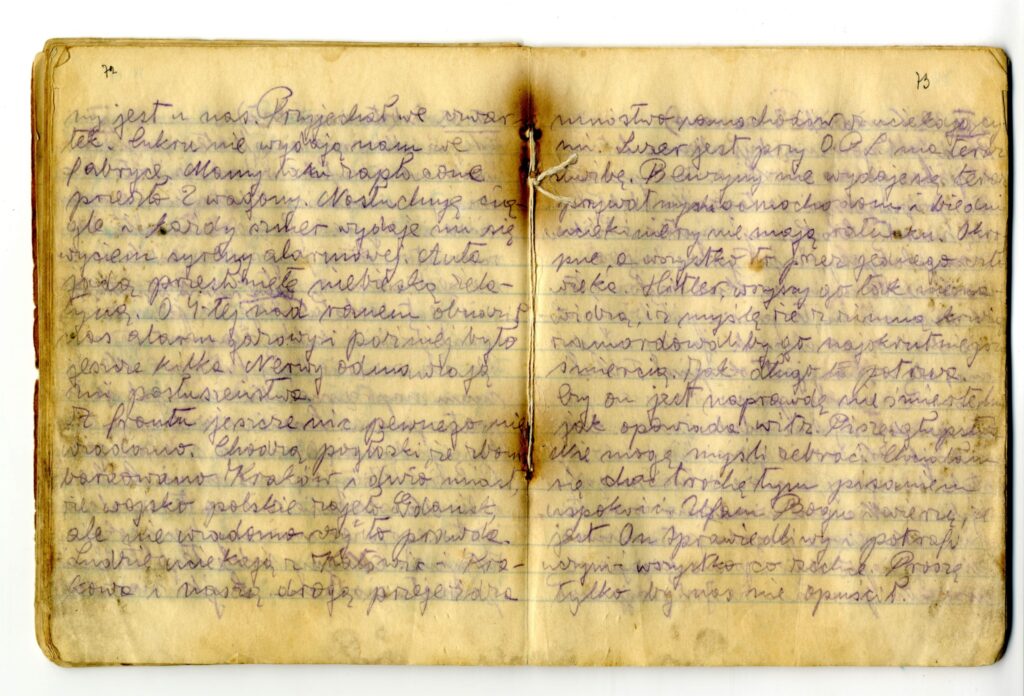 72
ny jest u nas. Przyjechał we czwar-
tek. Cukru nie wydają nam we
fabryce. Mamy zapłacone
przeszło 2 wagony. Nasłuchuję cią-
gle i każdy szmer wydaje mi się
wyciem syreny alarmowej. Auta
jadą przesłonięte niebieską żela-
tyną. O 4-tej nad ranem obudził
nas alarm gazowy i później było
jeszcze kilka. Nerwy odmawiają
mi posłuszeństwa.
Z frontu jeszcze nic pewnego nie
wiadomo. Chodzą pogłoski że zbom
bardowano Kraków i dużo miast,
że wojsko polskie zajęło Gdańsk
ale nie wiadomo czy to prawda.
Ludzie uciekają z Katowic i Kra-
kowa i naszą drogą przejeżdża
73
mnóstwo samochodów z uciekający
mi. Lzer jest przy O.P.L. ma teraz
służbę. Benzyny nie wydaje się teraz
prywatnym samochodom i biedni
uciekinierzy nie mają ratunku. Okro
pne, a wszystko to przez jednego czło
wieka. Hitler, wszyscy go tak niena
widzą, iż myślę że z zimną krwią
zamordowaliby go najokrutniejszą
śmiercią. Jak długo to potrwa.
Czy on jest naprawdę nieśmiertelny
jak opowiada witz. Piszę głupstwa
nie mogę myśli zebrać. Chciałam
się choć trochę tym pisaniem
uspokoić. Ufam Bogu i wierzę, iż
jest On sprawiedliwy i potrafi
wszystko co zechce. Proszę
tylko by nas nie opuścił.